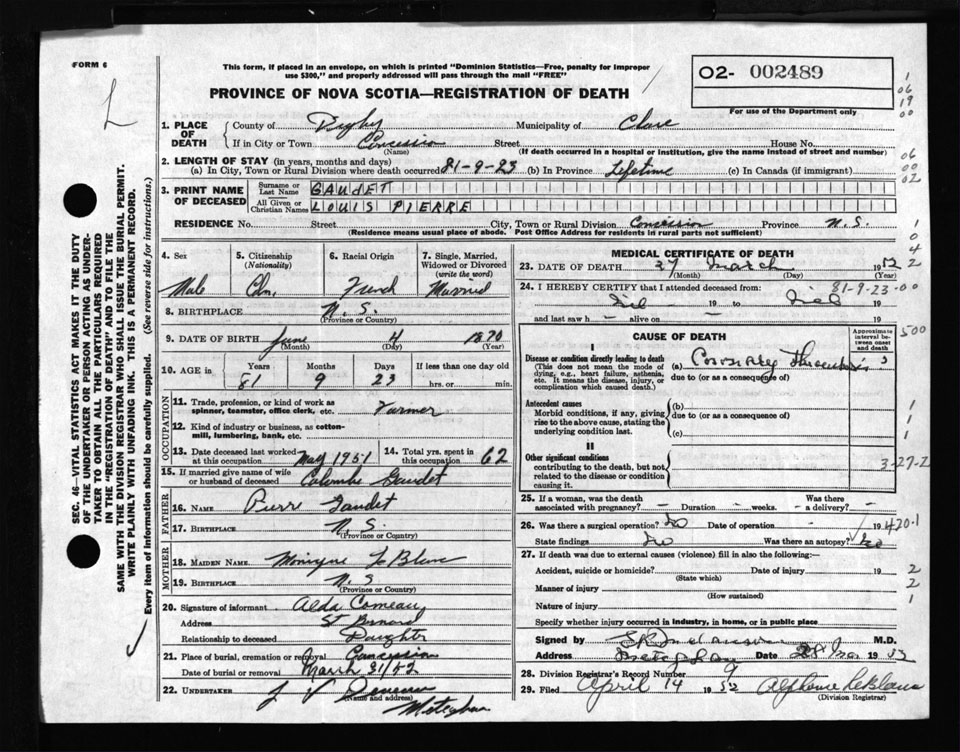 FORM 6
This form, if placed in an envelope, on which is printed "Dominion Statistics—Free, penalty for improper
use $300," and properly addressed will pass through the mail "FREE"
PROVINCE OF NOVA SCOTIA—REGISTRATION OF DEATH
02- 002489
For use of the Department only
L
SEC. 46—VITAL STATISTICS ACT MAKES IT THE DUTY
OF THE UNDERTAKER OR PERSON ACTING AS UNDER-
TAKER TO OBTAIN ALL THE PARTICULARS REQUIRED
IN THE "REGISTRATION OF DEATH" AND TO FILE THE
SAME WITH THE DIVISION REGISTRAR WHO SHALL ISSUE THE BURIAL PERMIT.
WRITE PLAINLY WITH UNFADING INK. THIS IS A PERMANENT RECORD.
Every item of information should be carefully supplied. (See reverse side for instructions.)
1. PLACE OF DEATH County of Digby Municipality of Clare
If in City or Town Concession Street House No.
(Name) (If death occurred in a hospital or institution, give the name instead of street and number)
2. LENGTH OF STAY (in years, months and days)
(a) In City, Town or Rural Division where death occurred 81-9-23 (b) In Province Lifetime (c) In Canada (if immigrant)
3. PRINT NAME OF DECEASED Surname or Last Name GAUDET
All Given or Christian Names LOUIS PIERRE
RESIDENCE No. Street City, Town or Rural Division Concession Province N.S.
(Residence means usual place of abode. Post Office Address for residents in rural parts not sufficient)
4. Sex Male
5. Citizenship (Nationality) Cdn.
6. Racial Origin French
7. Single, Married, Widowed or Divorced (write the word) Married
8. BIRTHPLACE N.S.
(Province or Country)
9. DATE OF BIRTH June 4 1870
(Month) (Day) (Year)
10. AGE in Years 81 Months 9 Days 23 If less than one day old hrs. or min.
OCCUPATION
11. Trade, profession, or kind of work as
spinner, teamster, office clerk, etc. Farmer
12. Kind of industry or business, as cotton-
mill, lumbering, bank, etc.
13. Date deceased last worked at this occupation May 1951
14. Total yrs. spent in this occupation 62
15. If married give name of wife
or husband of deceased Colombe Gaudet
FATHER
16. NAME Pierre Gaudet
17. BIRTHPLACE N.S.
(Province or Country)
MOTHER
18. MAIDEN NAME Monique LeBlanc
19. BIRTHPLACE N.S
(Province or Country)
20. Signature of informant Alda Comeau
Address St Bernard
Relationship to deceased Daughter
21. Place of burial, cremation or removal Concession
Date of burial or removal March 31/52
22. UNDERTAKER J V
(Name and address)
Meteghan
MEDICAL CERTIFICATE OF DEATH
23. DATE OF DEATH 27 March 1952
(Month) (Day) (Year)
24. I HEREBY CERTIFY that I attended deceased from: 81-9-23-00
Nil 19 to Nil 19
and last saw h alive on 19
CAUSE OF DEATH
Approximate interval between onset and death
I
Disease or condition directly leading to death
(This does not mean the mode of dying, e.g., heart failure, asthenia, etc. It means the disease, injury, or complication which caused death.)
(a) Coronary Thrombosis
due to (or as a consequence of)
Antecedent causes
Morbid conditions, if any, giving rise to the above cause, stating the underlying condition last.
(b)
due to (or as a consequence of)
(c)
II
Other significant conditions
contributing to the death, but not related to the disease or condition causing it.
25. If a woman, was the death associated with pregnancy? Duration weeks. Was there a delivery?
26. Was there a surgical operation? No Date of operation 19
State findings No Was there an autopsy? No
27. If death was due to external causes (violence) fill in also the following:—
Accident, suicide or homicide? Date of injury 19
(State which)
Manner of injury
(How sustained)
Nature of injury
Specify whether injury occurred in industry, in home, or in public place
Signed by M.D.
Address Meteghan Date 28 19
28. Division Registrar's Record Number 9
29. Filed April 14 1952 Alphonse LeBlanc
(Division Registrar)
1
06
19
00
06
00
02
1
0
4
2
500
1
1
1
3-27-2
420.1
2
2
1